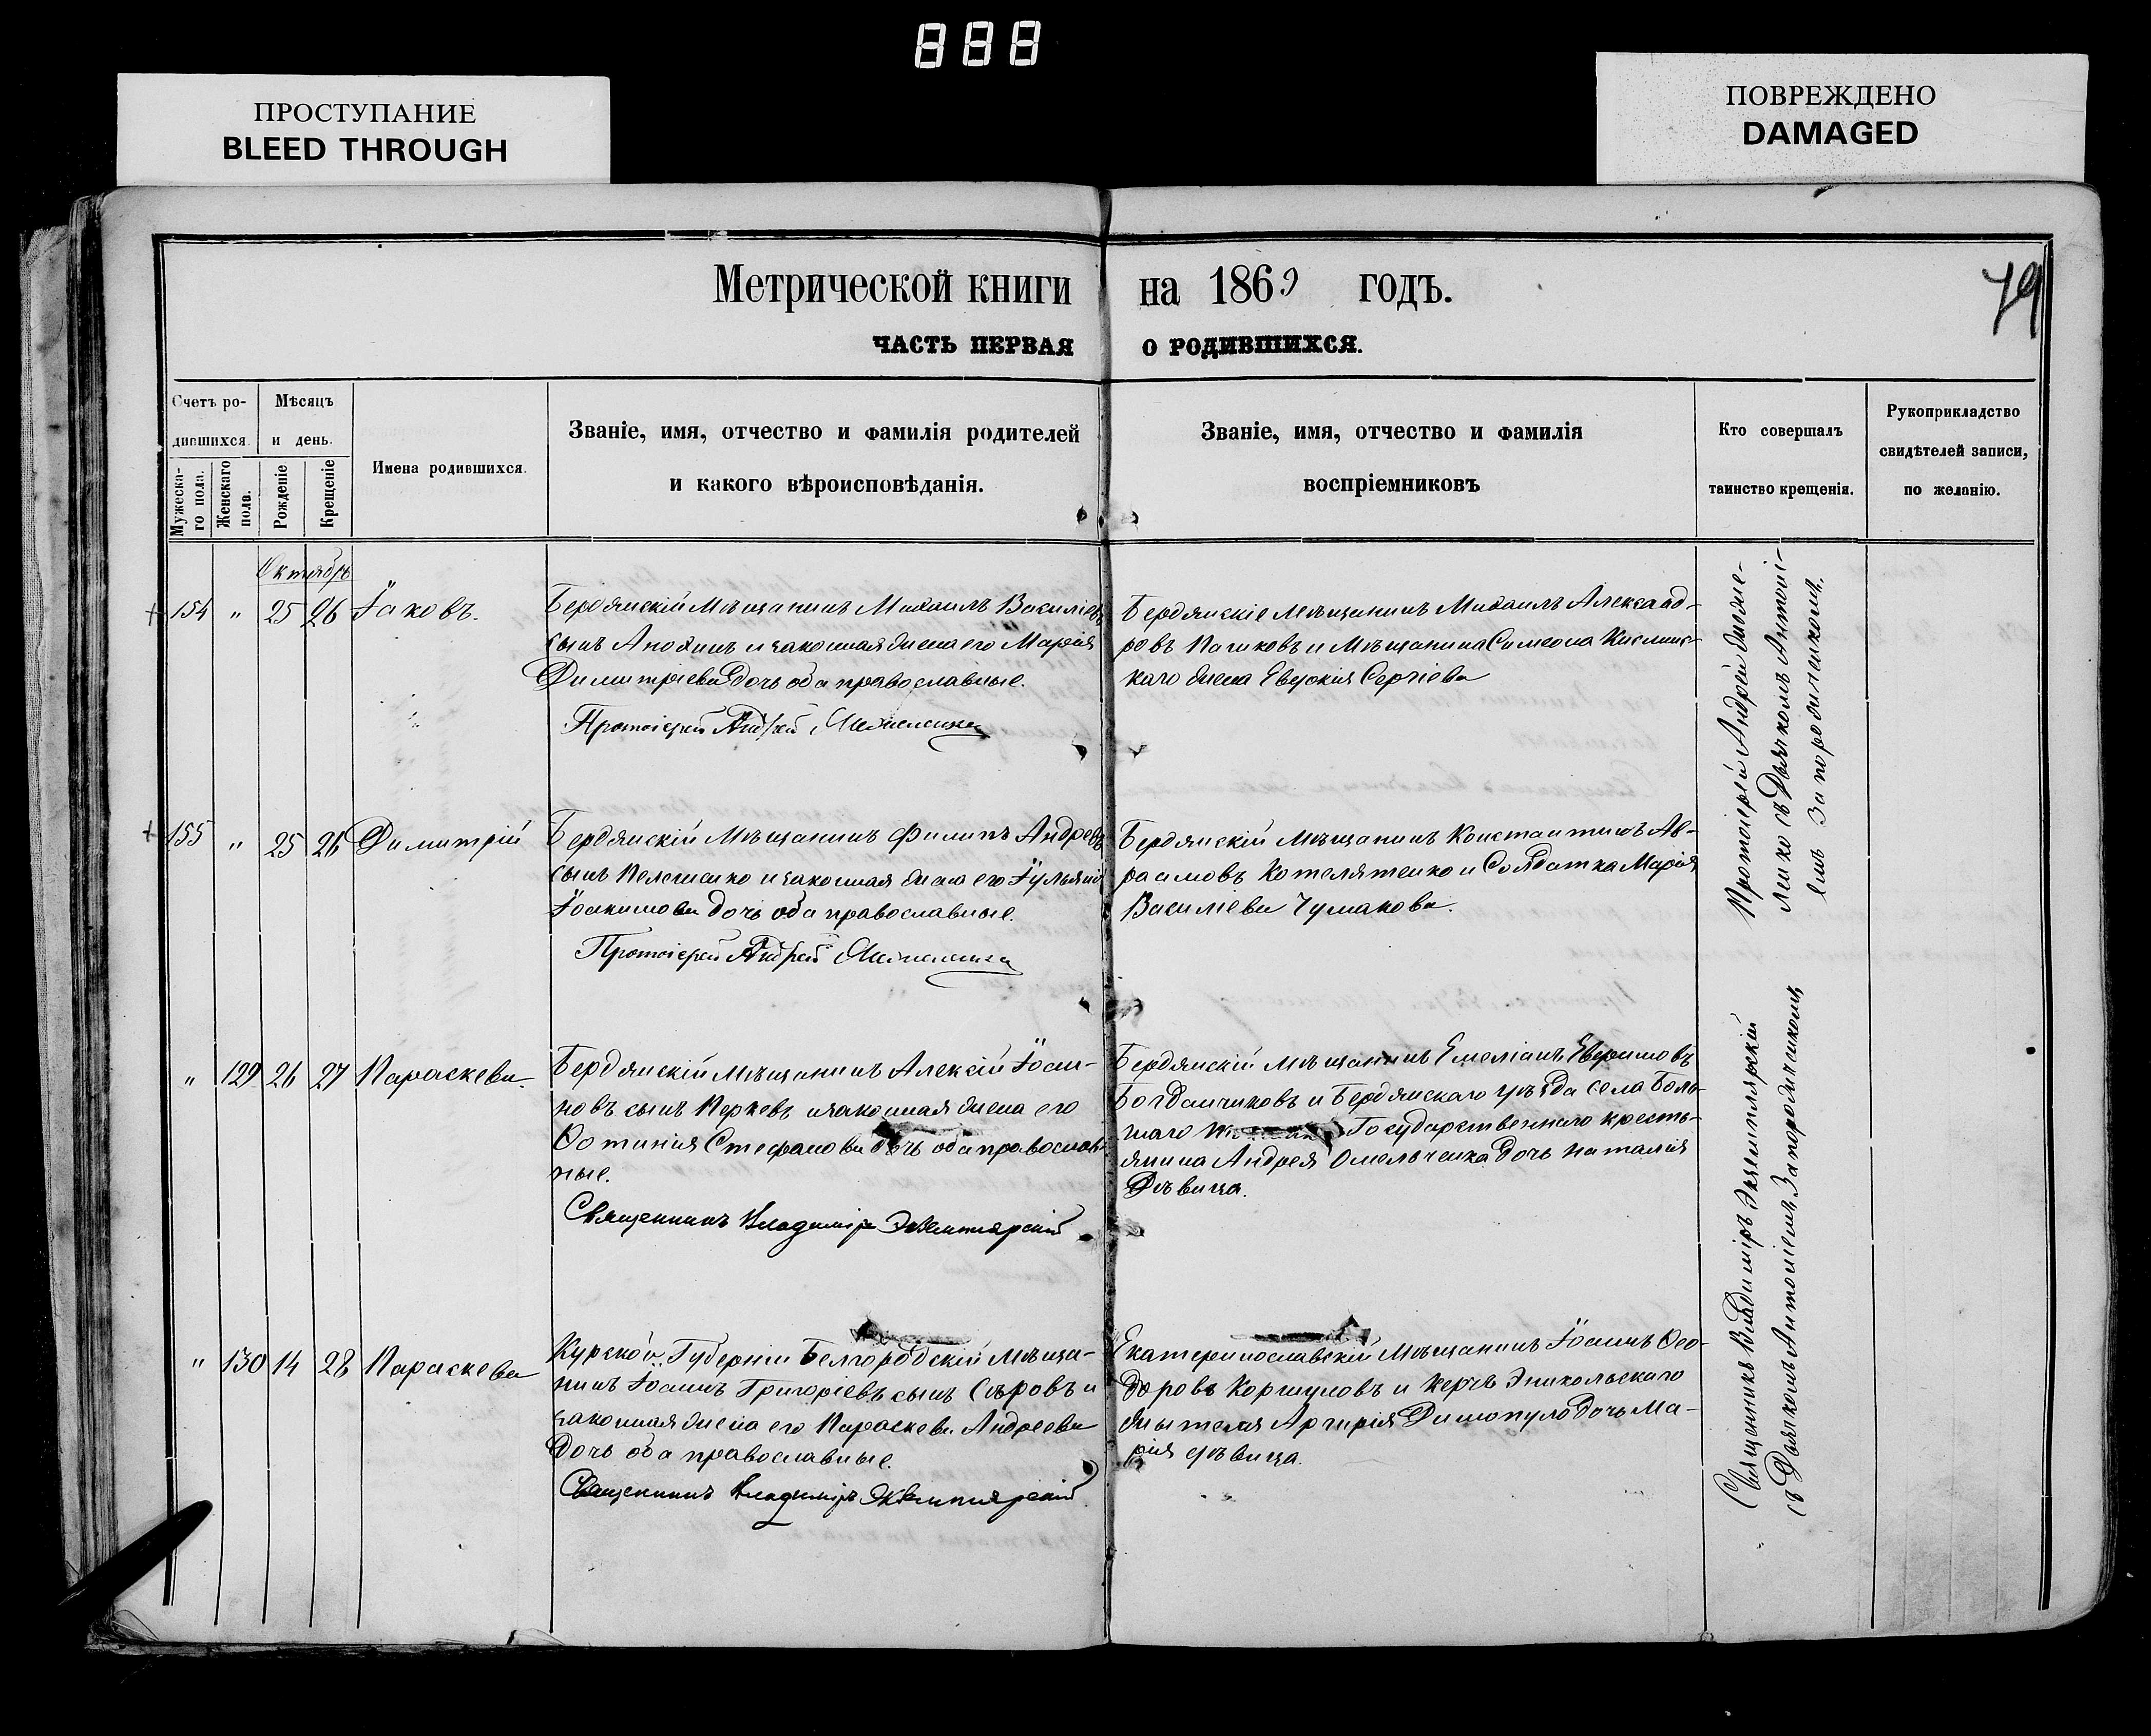 888
ПРОСТУПАНИЕ
BLEED THROUGH
ПОВРЕЖДЕНО
DAMAGED
Метрической книги на 1869 годъ.
79
ЧАСТЬ ПЕРВАЯ О РОДИВШИХСЯ.
Счетъ ро-
дившихся.
Мужеска-
го пола.
Женскаго
пола.
Мѣсяцъ
и день.
Рожденіе
Крещеніе
Имена родившихся.
Званіе, имя, отчество и фамилія родителей
и какого вѣроисповѣданія.
Званіе, имя, отчество и фамилія
воспріемниковъ
Кто совершалъ
таинство крещенія.
Рукоприкладство
свидѣтелей записи,
по желанію.
Октябрь
154 " 25 26 Іаковъ.
Бердянскій Мѣщанинъ Михаилъ Василіевъ
сынъ Анохинъ и законная жена его Марія
Димитріева дочь оба православные.
Протоіерей Андрей
Бердянскіе Мѣщанинъ Михаилъ Александ-
ровъ и Мѣщанина Симеона
каго жена Евдокія Сергіева
155 " 25 26 Димитрій
Бердянскій Мѣщанинъ Филипъ Андреевъ
сынъ и законная жена его Іульянія
Іоакимова дочь оба православные.
Протоіерей Андрей
Бердянскій Мѣщанинъ Константинъ Ав-
раамовъ Котелятенко и Солдатка Марія
Василіева Чумакова.
Протоіерей Андрей
съ Дьячкомъ Антоні-
емъ
" 129 26 27 Параскева.
Бердянскій Мѣщанинъ Алексій Іоан-
новъ сынъ и законная жена его
Фотинія Стефанова дочь оба православ-
ные.
Священникъ Владиміръ Экземплярскій
Бердянскій Мѣщанинъ Емеліанъ Ефимовъ
Богданчиковъ и Бердянскаго уѣзда села Боль-
шаго Государственнаго кресть-
янина Андрея Омельченка дочь Наталія
Дѣвица.
" 130 14 28 Параскева
Курской Губерніи Белгородскій Мѣща-
нинъ Іоаннъ Григоріевъ сынъ Сѣровъ и
законная жена его Параскева Андреева
дочь оба православные.
Священникъ Владиміръ Экземплярскій
Екатеринославскій Мѣщанинъ Іоаннъ Ѳео-
доровъ Коршуновъ и Керчь Эникольскаго
жителя Аргирія Димопуло дочь Ма-
рія дѣвица.
Священникъ Владиміръ Экземплярскій
съ Дьячкомъ Антоніемъ